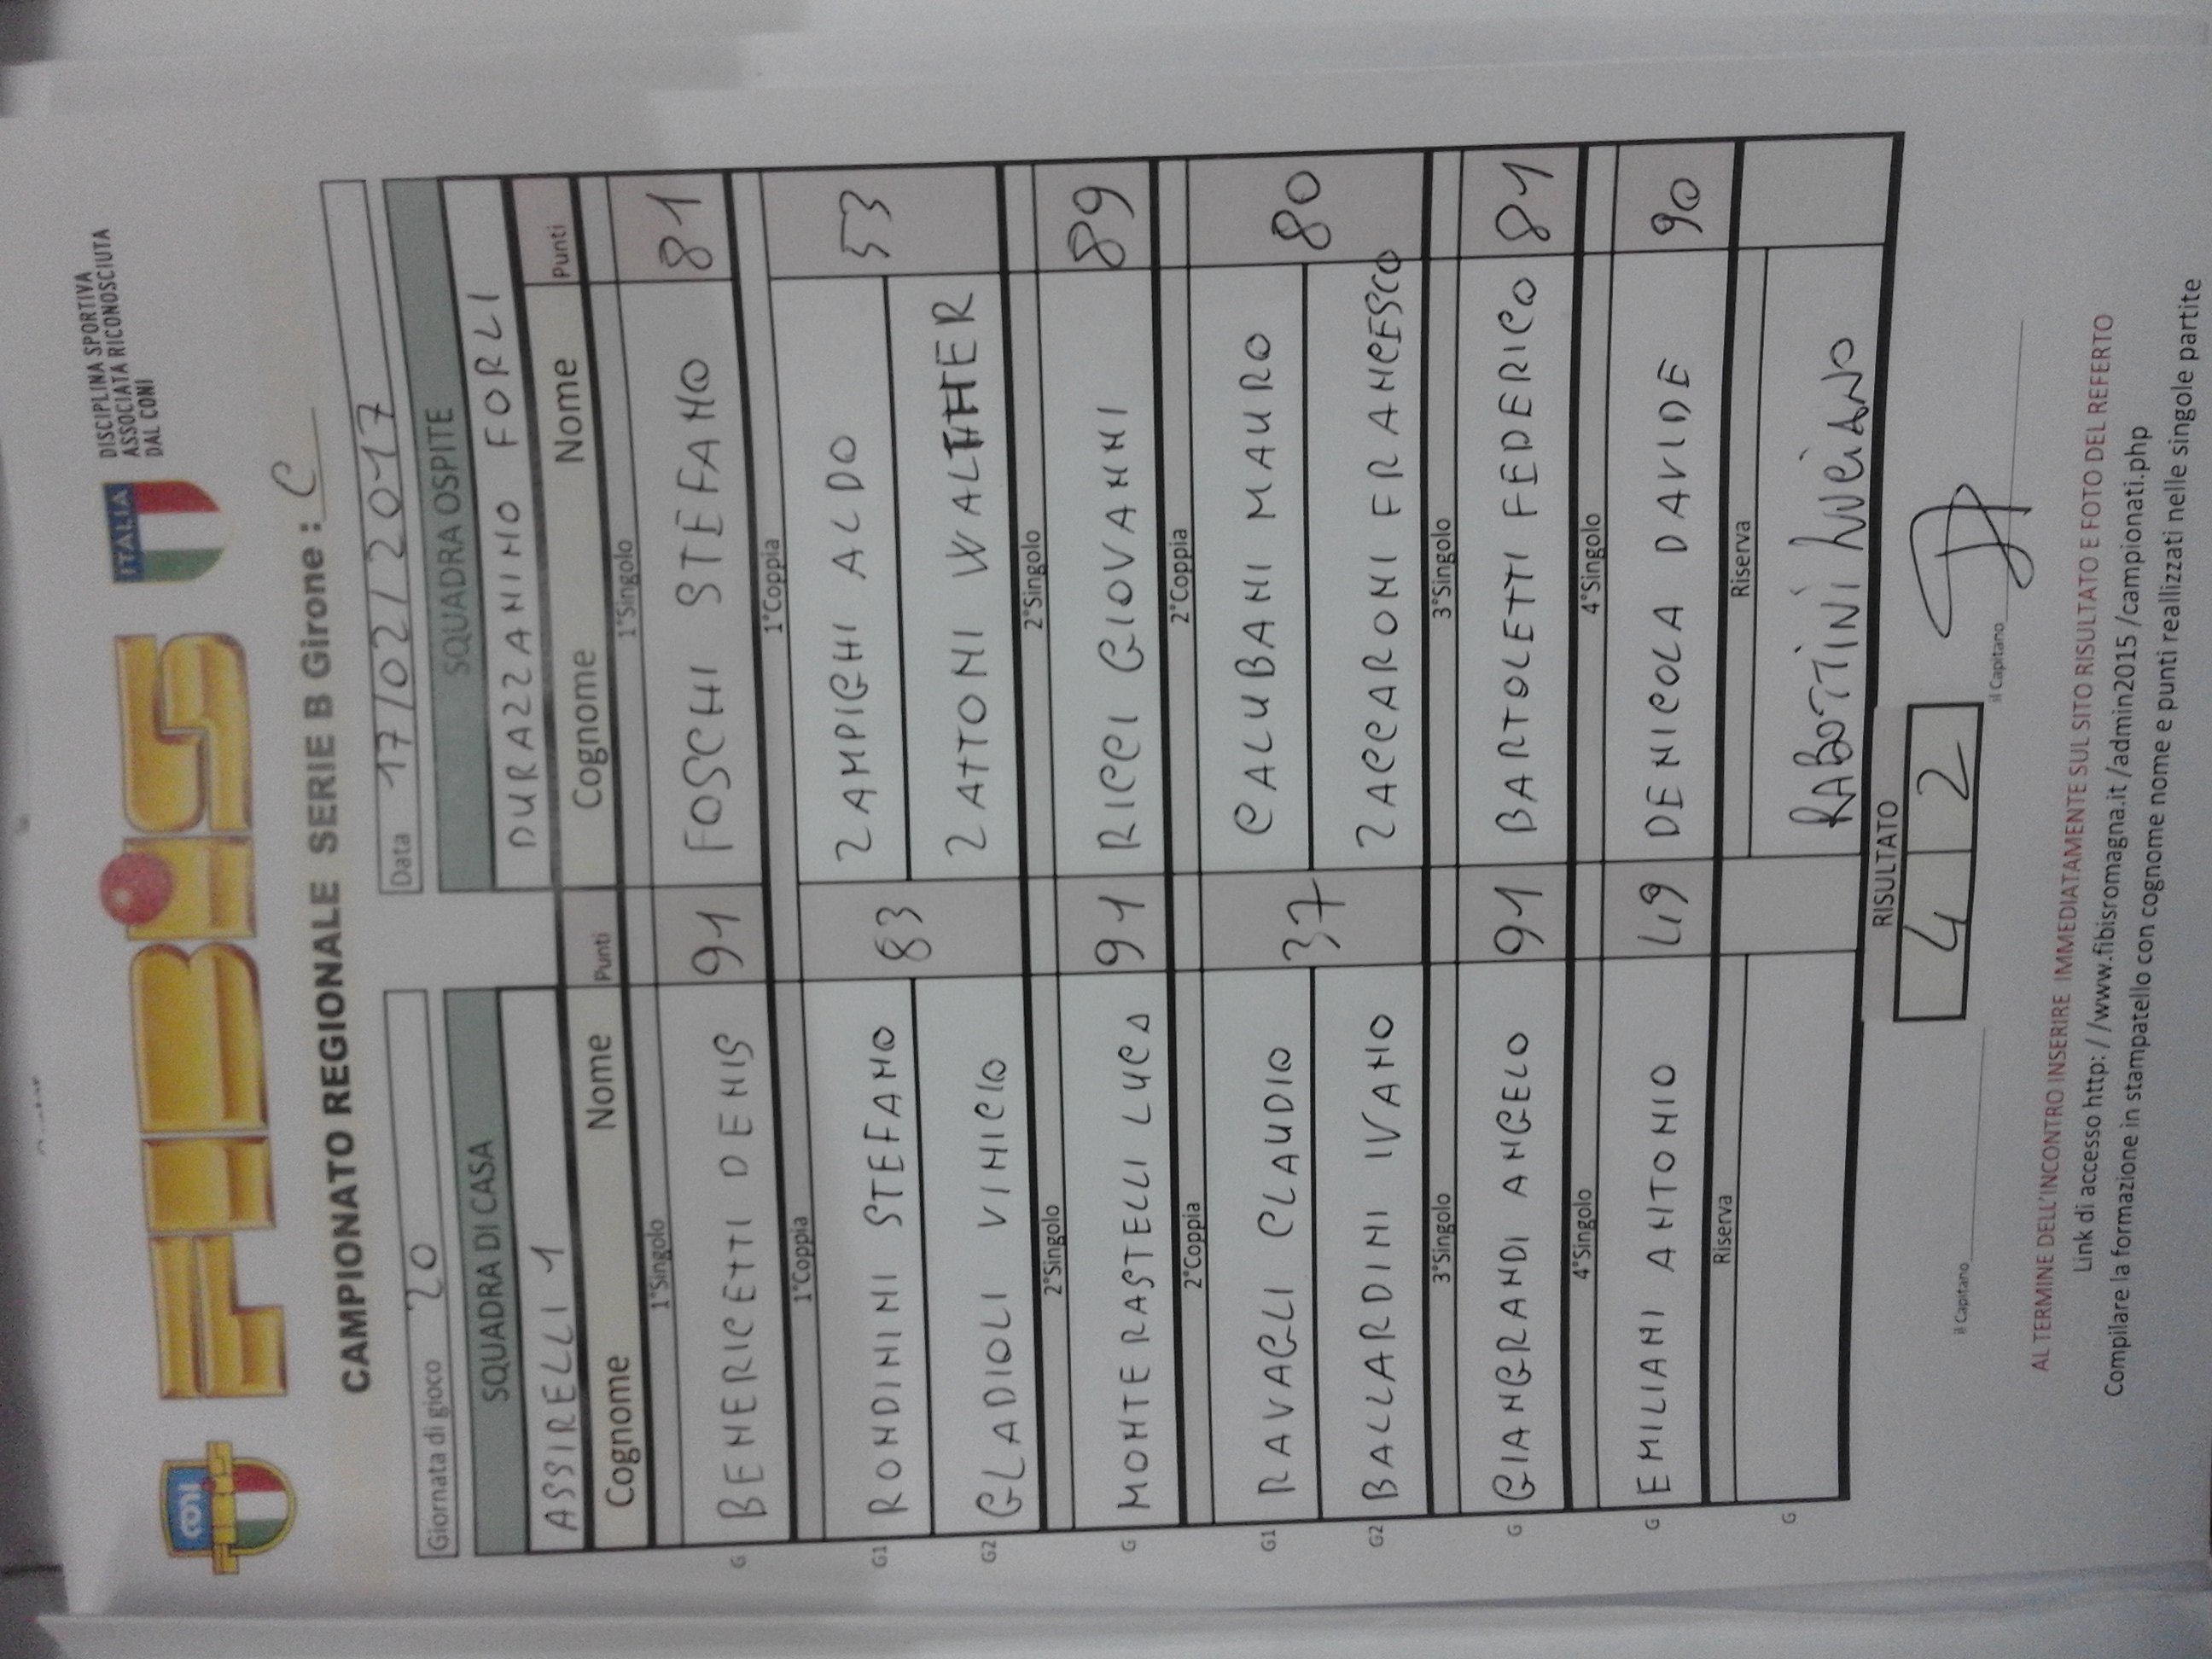 CONI
FIBiS
ITALIA
DISCIPLINA SPORTIVA
ASSOCIATA RICONOSCIUTA
DAL CONI
CAMPIONATO REGIONALE SERIE B Girone : C
Giornata di gioco 20
Data 17/02/2017
SQUADRA DI CASA
SQUADRA OSPITE
ASSIRELLI 1
DURAZZANINO FORLI
Cognome Nome Punti Cognome Nome Punti
1°Singolo 1°Singolo
G BENERICETTI DENIS 91 FOSCHI STEFANO 81
1°Coppia 1°Coppia
G1 RONDININI STEFANO 83 ZAMPIGHI ALDO 53
G2 GLADIOLI VINICIO ZATTONI WALTHER
2°Singolo 2°Singolo
G MONTERASTELLI LUCA 91 RICCI GIOVANNI 89
2°Coppia 2°Coppia
G1 RAVAGLI CLAUDIO 37 CALUBANI MAURO 80
G2 BALLARDINI IVANO ZACCARONI FRANCESCO
3°Singolo 3°Singolo
G GIANGRANDI ANGELO 91 BARTOLETTI FEDERICO 81
4°Singolo 4°Singolo
G EMILIANI ANTONIO 49 DENICOLA DAVIDE 90
Riserva Riserva
G RABOTTINI LUCIANO
RISULTATO
4 2
il Capitano il Capitano
AL TERMINE DELL'INCONTRO INSERIRE IMMEDIATAMENTE SUL SITO RISULTATO E FOTO DEL REFERTO
Link di accesso http: / /www.fibisromagna.it /admin2015 /campionati.php
Compilare la formazione in stampatello con cognome nome e punti reallizzati nelle singole partite